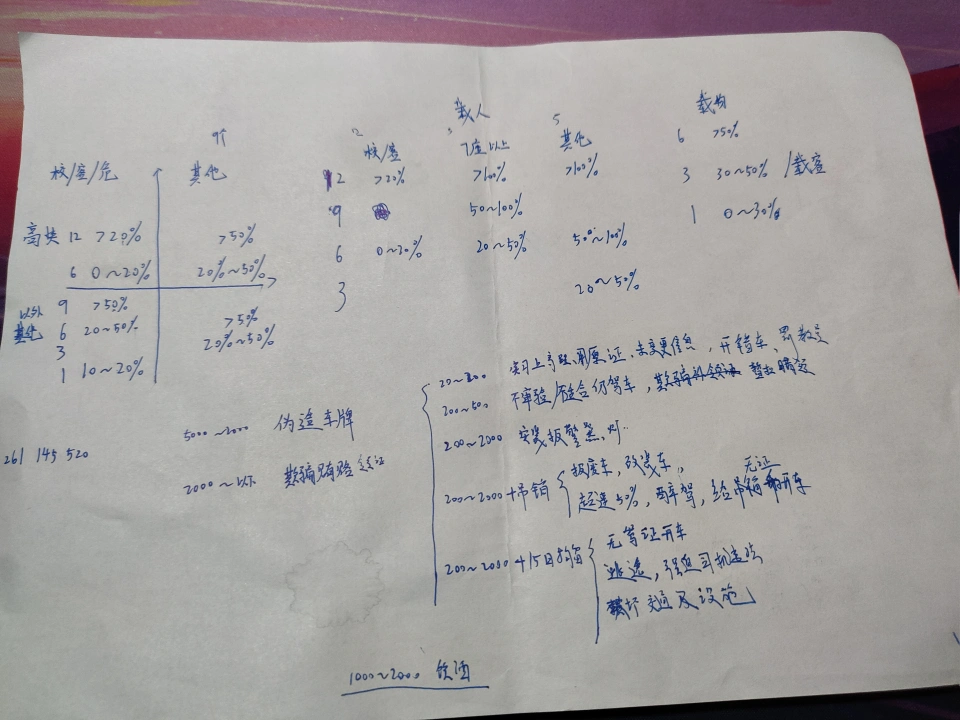 校/客/危 其他
高快 12 >20% >50%
6 0~20% 20%~50%
以外 9 >50%
其他 6 20~50% >50%
3 20%~50%
1 10~20%
载人
2 校/客 3 7座以上 5 其他
12 >20% >100% >100%
9 50~100%
6 0~20% 20~50% 50~100%
3 20~50%
载物
6 >50%
3 30~50% /载客
1 0~30%
261 145 520
5000~2000 伪造车牌
2000~以下
20~200 实习上高速、用原证、未变更信息,开错车、
200~500 不审验/不适合仍驾车,
200~2000 安装报警器、灯..
200~2000+吊销 报废车,改装车,
超速50%,醉驾,给无证 吊销 开车
200~2000+15日拘留 无驾证开车
逃逸,强迫司机违法
损坏交通及设施
1000~2000 饮酒